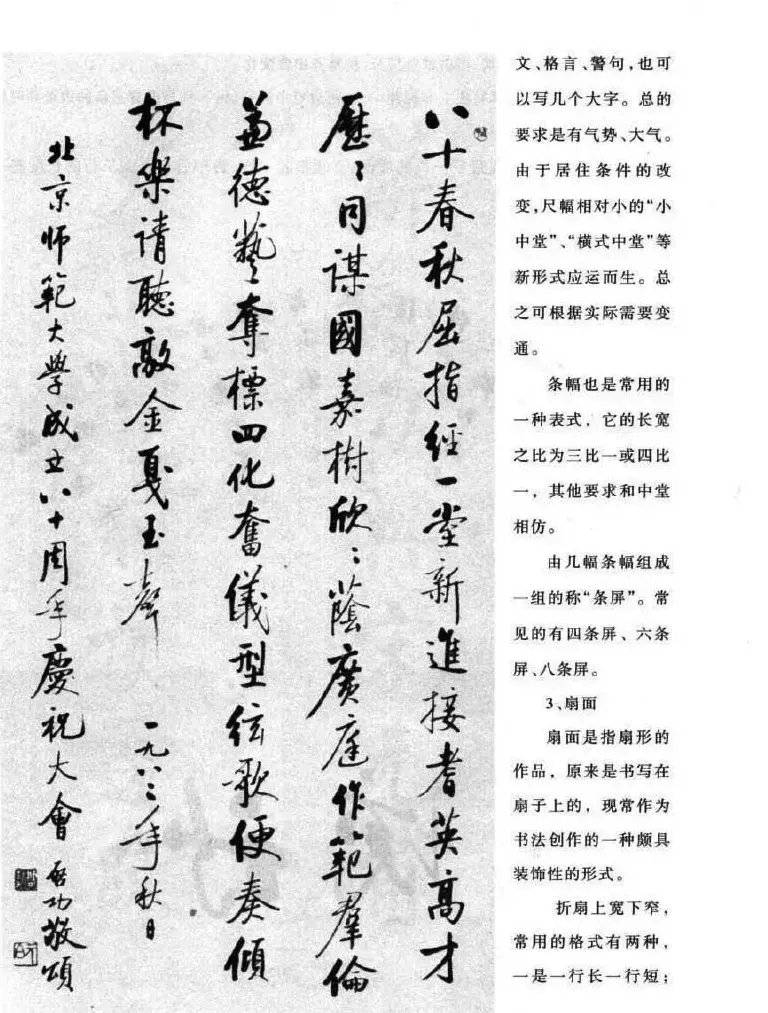 八十春秋屈指經一堂新進接耆英高才
歷〻同謀國嘉樹欣〻蔭廣庭作範羣倫
兼德藝奪標四化奮儀型弦歌便奏傾
杯樂請聽敲金戛玉聲 一九八二年秋日
北京师範大學成立八十周年慶祝大會 啓功敬頌
文、格言、警句，也可
以写几个大字。总的
要求是有气势、大气。
由于居住条件的改
变，尺幅相对小的“小
中堂”、“横式中堂”等
新形式应运而生。总
之可根据实际需要变
通。
条幅也是常用的
一种表式，它的长宽
之比为三比一或四比
一，其他要求和中堂
相仿。
由几幅条幅组成
一组的称“条屏”。常
见的有四条屏、六条
屏、八条屏。
3、扇面
扇面是指扇形的
作品，原来是书写在
扇子上的，现常作为
书法创作的一种颇具
装饰性的形式。
折扇上宽下窄，
常用的格式有两种，
一是一行长一行短；